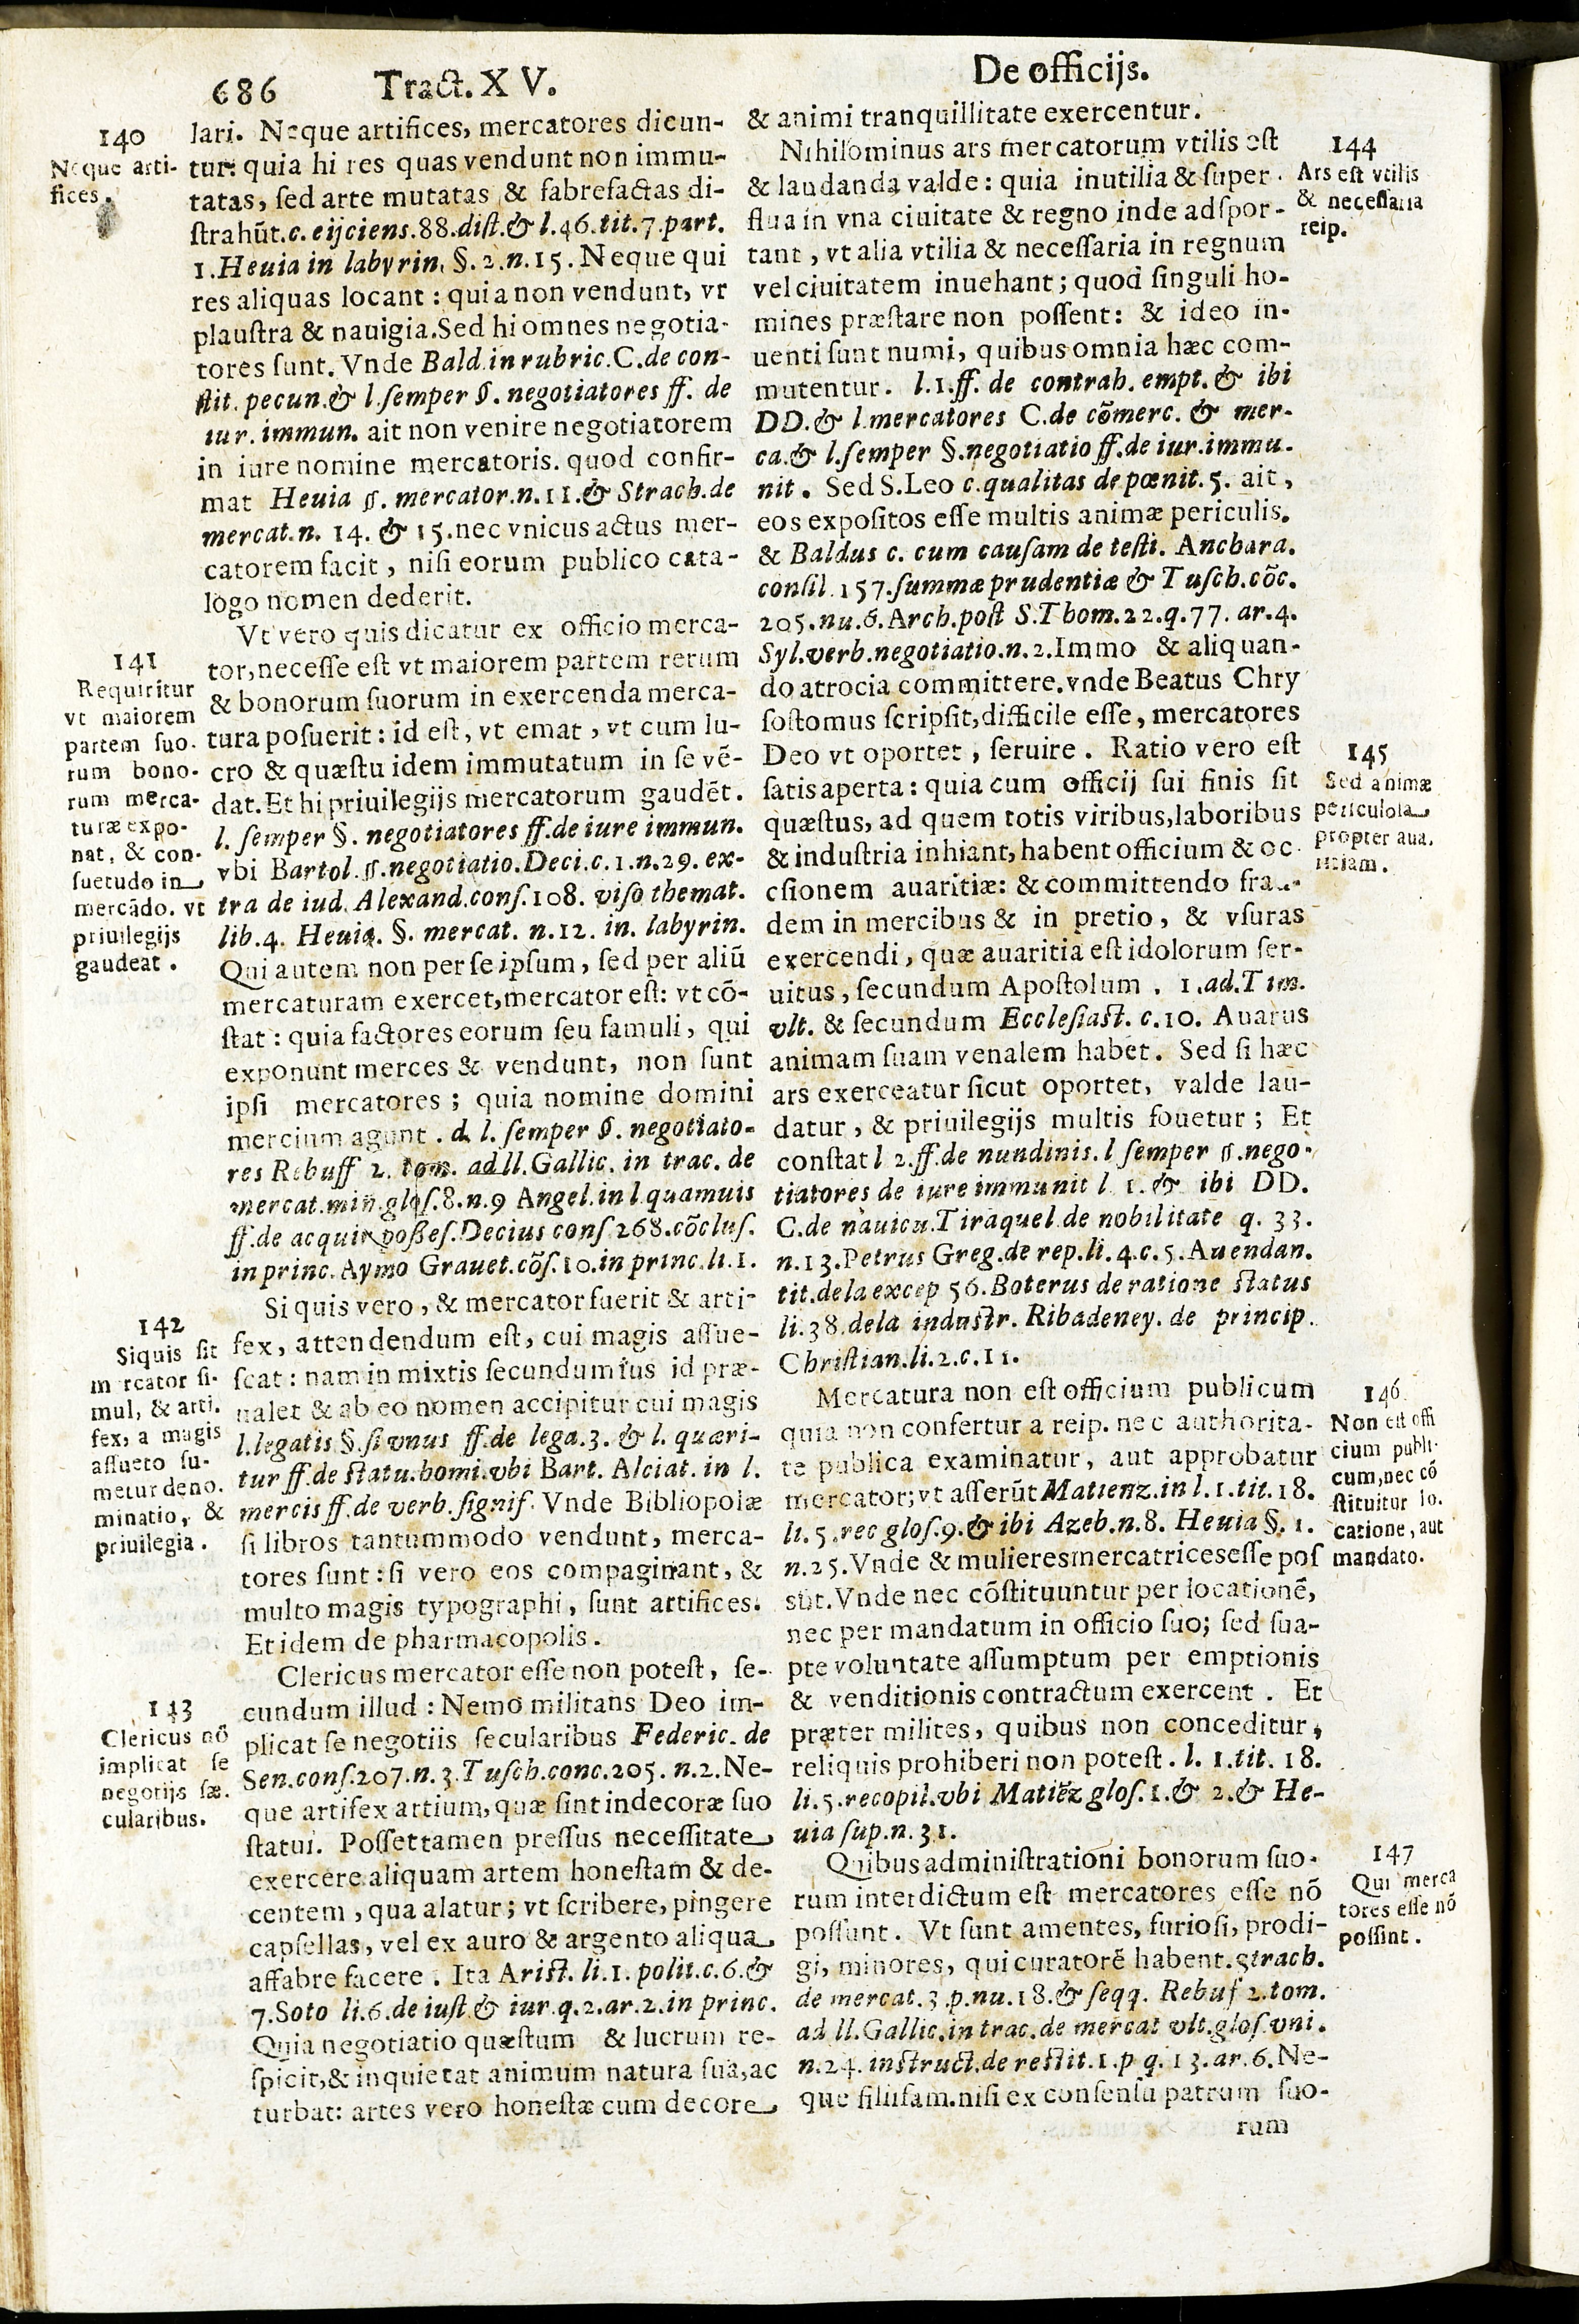 686 Tract. X V.
De officijs.
140
Neque arti-
fices.
lari. Neque artifices, mercatores dicun-
tur: quia hi res quas vendunt non immu-
tatas, sed arte mutatas & fabrefactas di-
strahũt. c. eijciens. 88. dist. & l. 46. tit. 7. part.
1. Heuia in labyrin. §. 2. n. 15. Neque qui
res aliquas locant : quia non vendunt, vt
plaustra & nauigia. Sed hi omnes negotia-
tores sunt. Vnde Bald. in rubric. C. de con-
stit. pecun. & l. semper §. negotiatores ff. de
iur. immun. ait non venire negotiatorem
in iure nomine mercatoris. quod confir-
mat Heuia §. mercator. n. 11. & Strach. de
mercat. n. 14. & 15. nec vnicus actus mer-
catorem facit, nisi eorum publico cata-
logo nomen dederit.
141
Requiritur
vt maiorem
partem suo-
rum bono-
rum merca-
turæ expo-
nat, & con-
suetudo in
mercãdo. vt
priuilegijs
gaudeat.
Vt vero quis dicatur ex officio merca-
tor, necesse est vt maiorem partem rerum
& bonorum suorum in exercenda merca-
tura posuerit : id est, vt emat, vt cum lu-
cro & quæstu idem immutatum in se vẽ-
dat. Et hi priuilegijs mercatorum gaudẽt.
l. semper §. negotiatores ff. de iure immun.
vbi Bartol. §. negotiatio. Deci. c. 1. n. 29. ex-
tra de iud. Alexand. cons. 108. viso themat.
lib. 4. Heuia. §. mercat. n. 12. in. labyrin.
Qui autem non per se ipsum, sed per aliũ
mercaturam exercet, mercator est: vt cõ-
stat : quia factores eorum seu famuli, qui
exponunt merces & vendunt, non sunt
ipsi mercatores ; quia nomine domini
mercium agunt. d. l. semper §. negotiato-
res Rebuff 2. tom. ad ll. Gallic. in trac. de
mercat. min. glos. 8. n. 9 Angel. in l. quamuis
ff. de acquir. posses. Decius cons 268. cõclus.
in princ. Aymo Grauet. cõs. 10. in princ. li. 1.
142
Siquis sit
m rcator si-
mul, & arti-
fex, a magis
assueto su-
metur deno-
minatio, &
priuilegia.
Si quis vero, & mercator fuerit & arti-
fex, attendendum est, cui magis assue-
scat : nam in mixtis secundum ius id præ-
ualet & ab eo nomen accipitur cui magis
l. legatis §. si vnus ff. de lega. 3. & l. quæri-
tur ff. de statu. homi. vbi Bart. Alciat. in l.
mercis ff. de verb. signif. Vnde Bibliopolæ
si libros tantummodo vendunt, merca-
tores sunt : si vero eos compaginant, &
multo magis typographi, sunt artifices.
Et idem de pharmacopolis.
143
Clericus nõ
implicat se
negotijs sæ-
cularibus.
Clericus mercator esse non potest, se-
cundum illud : Nemo militans Deo im-
plicat se negotiis secularibus Federic. de
Sen. cons. 207. n. 3. Tusch. conc. 205. n. 2. Ne-
que artifex artium, quæ sint indecoræ suo
statui. Posset tamen pressus necessitate
exercere aliquam artem honestam & de-
centem, qua alatur ; vt scribere, pingere
capsellas, vel ex auro & argento aliqua
affabre facere. Ita Arist. li. 1. polit. c. 6. &
7. Soto li. 6. de iust. & iur. q. 2. ar. 2. in princ.
Quia negotiatio quæstum & lucrum re-
spicit, & inquietat animum natura sua, ac
turbat: artes vero honestæ cum decore
& animi tranquillitate exercentur.
144
Ars est vtilis
& necessaria
reip.
Nihilominus ars mercatorum vtilis est
& laudanda valde : quia inutilia & super-
flua in vna ciuitate & regno inde adspor-
tant, vt alia vtilia & necessaria in regnum
vel ciuitatem inuehant ; quod singuli ho-
mines præstare non possent: & ideo in-
uenti sunt numi, quibus omnia hæc com-
mutentur. l. 1. ff. de contrah. empt. & ibi
DD. & l. mercatores C. de cõmerc. & mer-
ca. & l. semper §. negotiatio ff. de iur. immu-
nit. Sed S. Leo c. qualitas de pœnit. 5. ait,
eos expositos esse multis animæ periculis.
& Baldus c. cum causam de testi. Anchara.
consil. 157. summæ prudentiæ & Tusch. cõc.
205. nu. 6. Arch. post S. Thom. 22. q. 77. ar. 4.
Syl. verb. negotiatio. n. 2. Immo & aliquan-
do atrocia committere. vnde Beatus Chry
sostomus scripsit, difficile esse, mercatores
Deo vt oportet, seruire. Ratio vero est
145
Sed animæ
periculosa
propter aua-
ritiam.
satis aperta : quia cum officij sui finis sit
quæstus, ad quem totis viribus, laboribus
& industria inhiant, habent officium & oc
csionem auaritiæ: & committendo frau-
dem in mercibus & in pretio, & vsuras
exercendi, quæ auaritia est idolorum ser-
uitus, secundum Apostolum. 1. ad. Tim.
vlt. & secundum Ecclesiast. c. 10. Auarus
animam suam venalem habet. Sed si hæc
ars exerceatur sicut oportet, valde lau-
datur, & priuilegijs multis fouetur ; Et
constat l 2. ff. de nundinis. l semper §. nego-
tiatores de iure immunit l 1. & ibi DD.
C. de nauicu. Tiraquel de nobilitate q. 33.
n. 13. Petrus Greg. de rep. li. 4. c. 5. Auendan.
tit. de la excep 56. Boterus de ratione status
li. 38. de la industr. Ribadeney. de princip.
Christian. li. 2. c. 11.
146
Non est offi
cium publi-
cum, nec cõ
stituitur lo-
catione, aut
mandato.
Mercatura non est officium publicum
quia non confertur a reip. nec authorita-
te publica examinatur, aut approbatur
mercator; vt asserũt Matienz. in l. 1. tit. 18.
li. 5. rec glos. 9. & ibi Azeb. n. 8. Heuia §. 1.
n. 25. Vnde & mulieres mercatrices esse pos
sũt. Vnde nec cõstituuntur per locationẽ,
nec per mandatum in officio suo; sed sua-
pte voluntate assumptum per emptionis
& venditionis contractum exercent. Et
præter milites, quibus non conceditur,
reliquis prohiberi non potest. l. 1. tit. 18.
li. 5. recopil. vbi Matiẽz glos. 1. & 2. & He-
uia sup. n. 31.
147
Qui merca
tores esse nõ
possint.
Quibus administrationi bonorum suo-
rum interdictum est mercatores esse nõ
possunt. Vt sunt amentes, furiosi, prodi-
gi, minores, qui curatorẽ habent. Strach.
de mercat. 3. p. nu. 18. & seqq. Rebuf 2. tom.
ad ll. Gallic. in trac. de mercat vlt. glos. vni.
n. 24. instruct. de restit. 1. p q. 13. ar. 6. Ne-
que filiifam. nisi ex consensu patrum suo-
rum